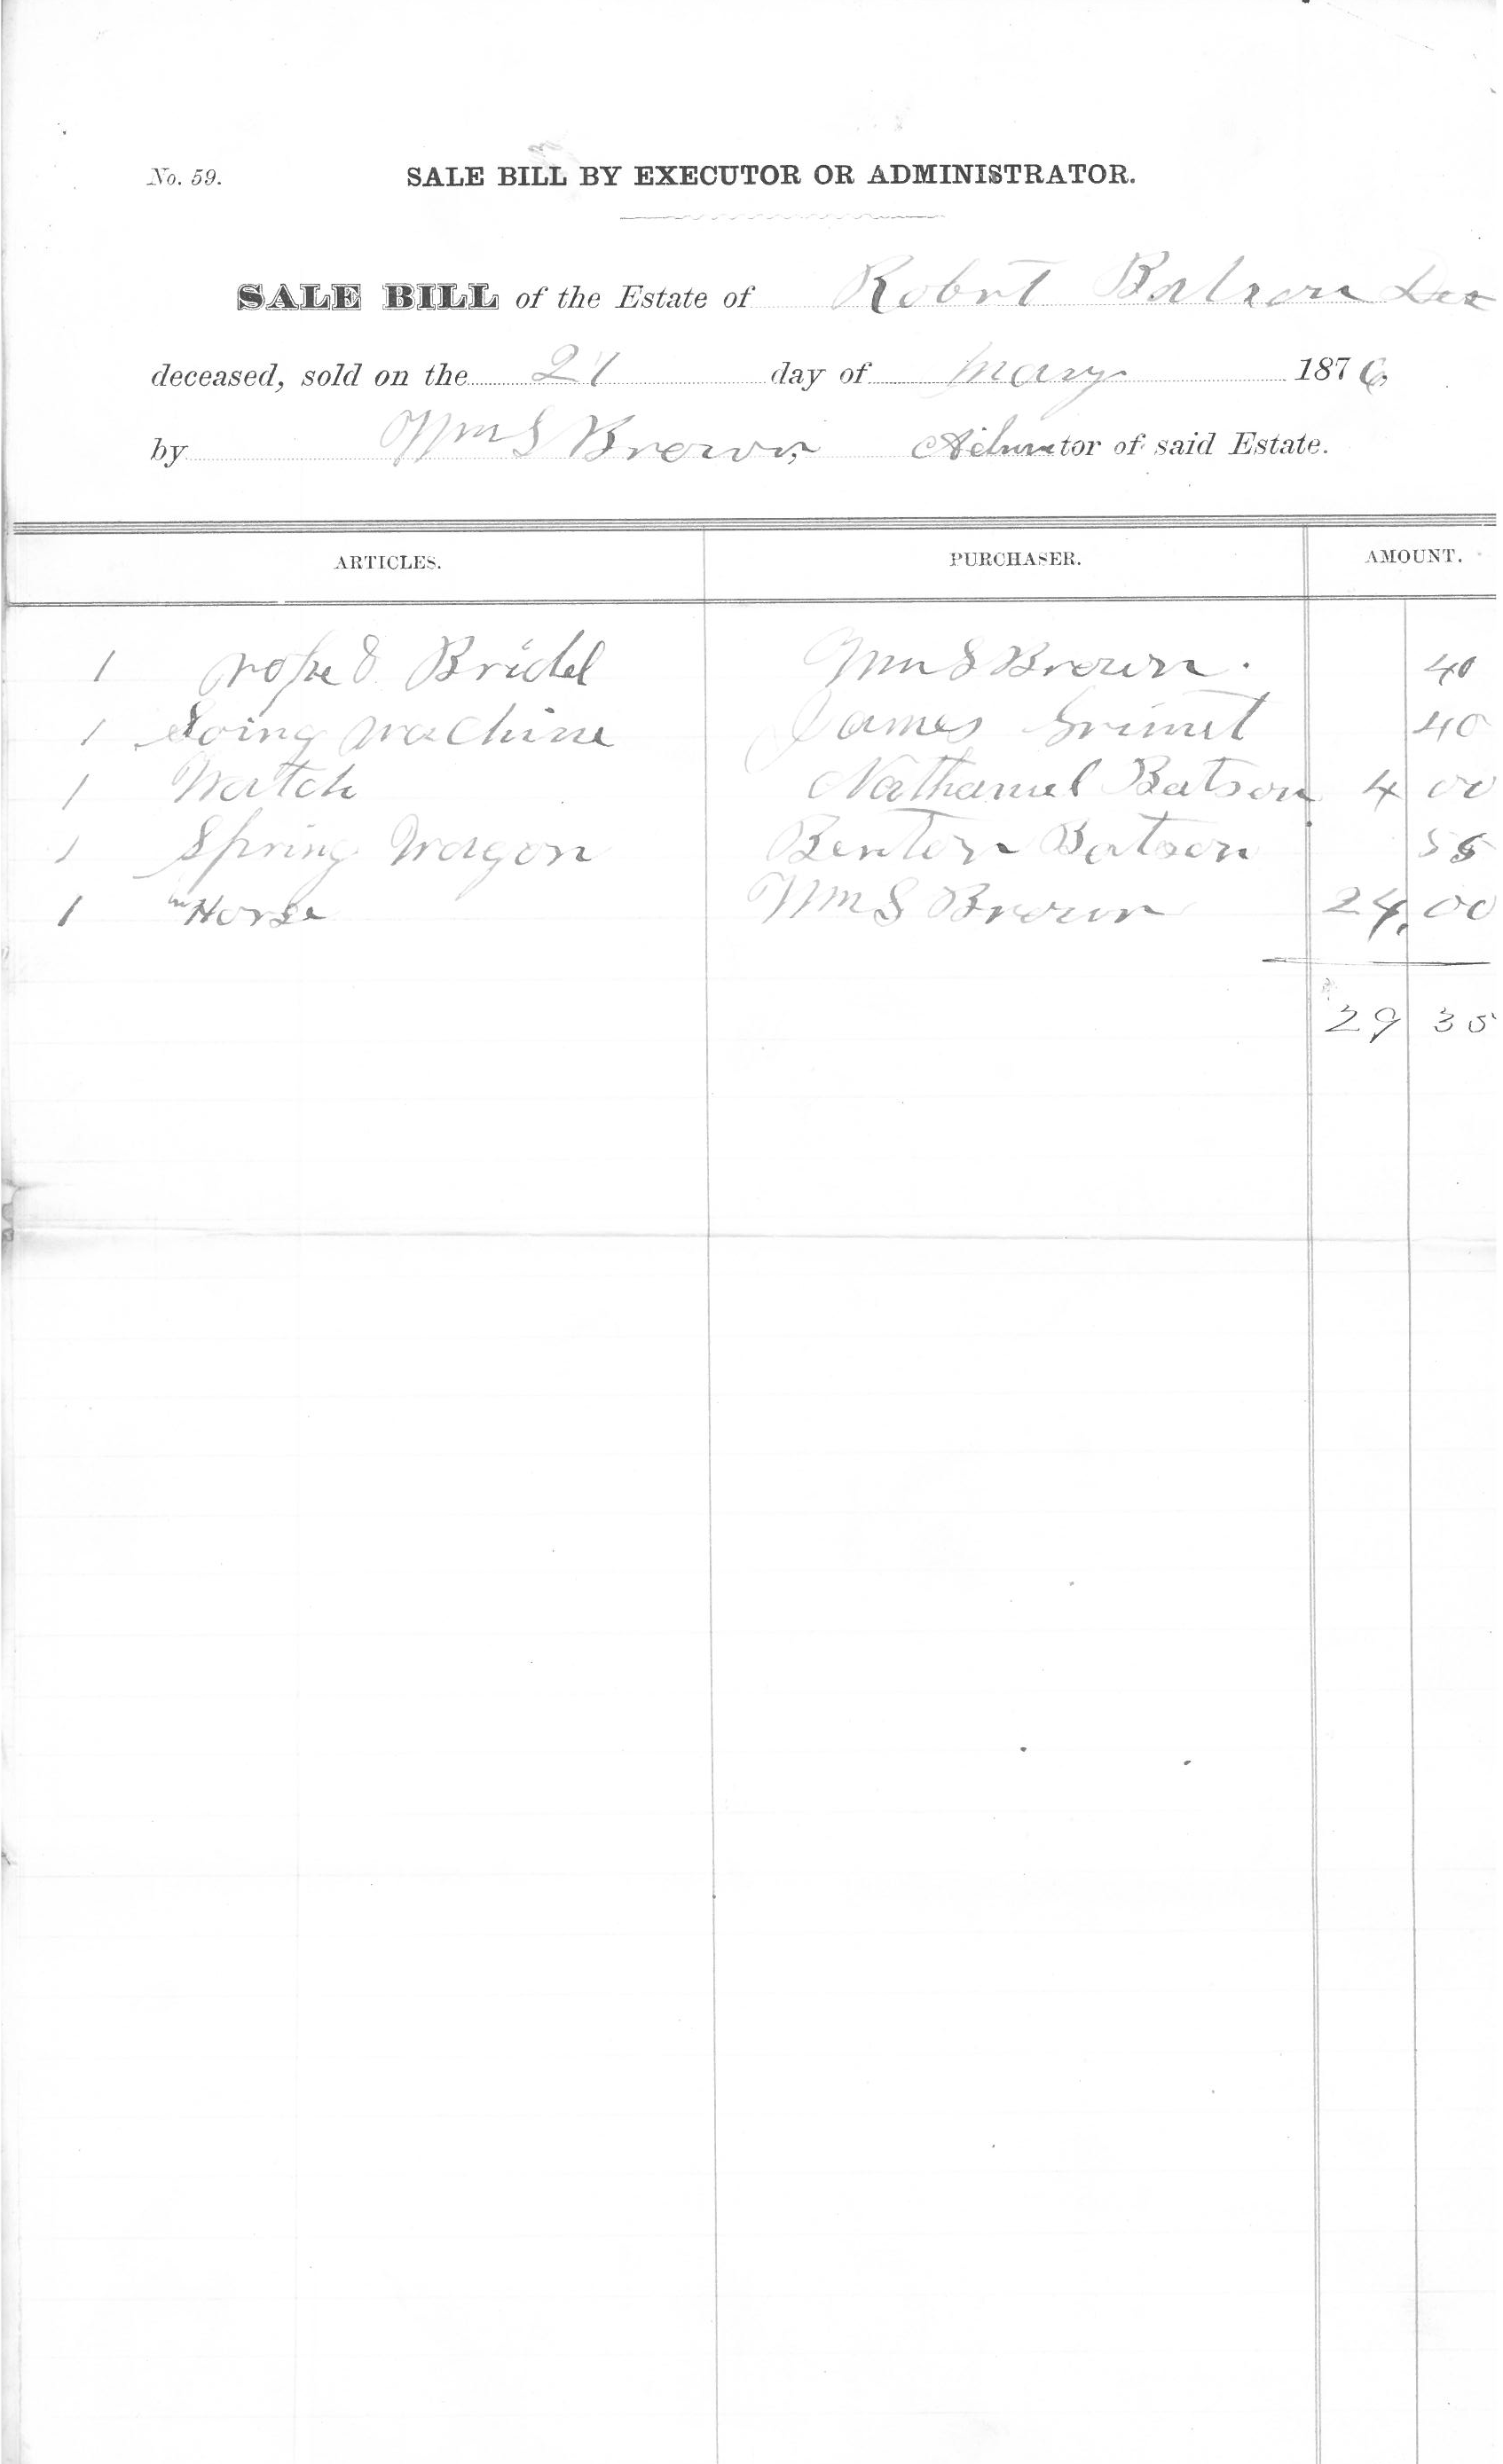 No. 59. SALE BILL BY EXECUTOR OR ADMINISTRATOR.
SALE BILL of the Estate of Robert Batson Dec
deceased, sold on the 21 day of May 1876,
by Wm S Brown, Admintor of said Estate.
ARTICLES. PURCHASER. AMOUNT.
1 rope & Bridel Wm S Brown. 40
1 Soing Machine James 40
1 Watch Nathaniel Batson 4 00
1 Spring Wagon Benton Batson 55
1 Horse Wm S Brown 24.00
29 35